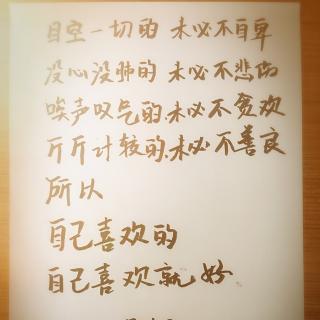 目空一切的 未必不自卑
没心没肺的 未必不悲伤
唉声叹气的.未必不贪欢
斤斤计较的.未必不善良
所以
自己喜欢的
自己喜欢就好.